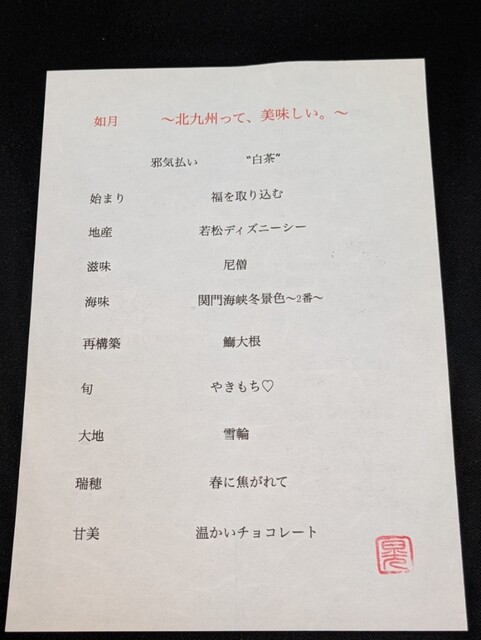 如月　～北九州って、美味しい。～
邪気払い　“白茶”
始まり　福を取り込む
地産　若松ディズニーシー
滋味　尼僧
海味　関門海峡冬景色～2番～
再構築　鰤大根
旬　やきもち♡
大地　雪輪
瑞穂　春に焦がれて
甘美　温かいチョコレート